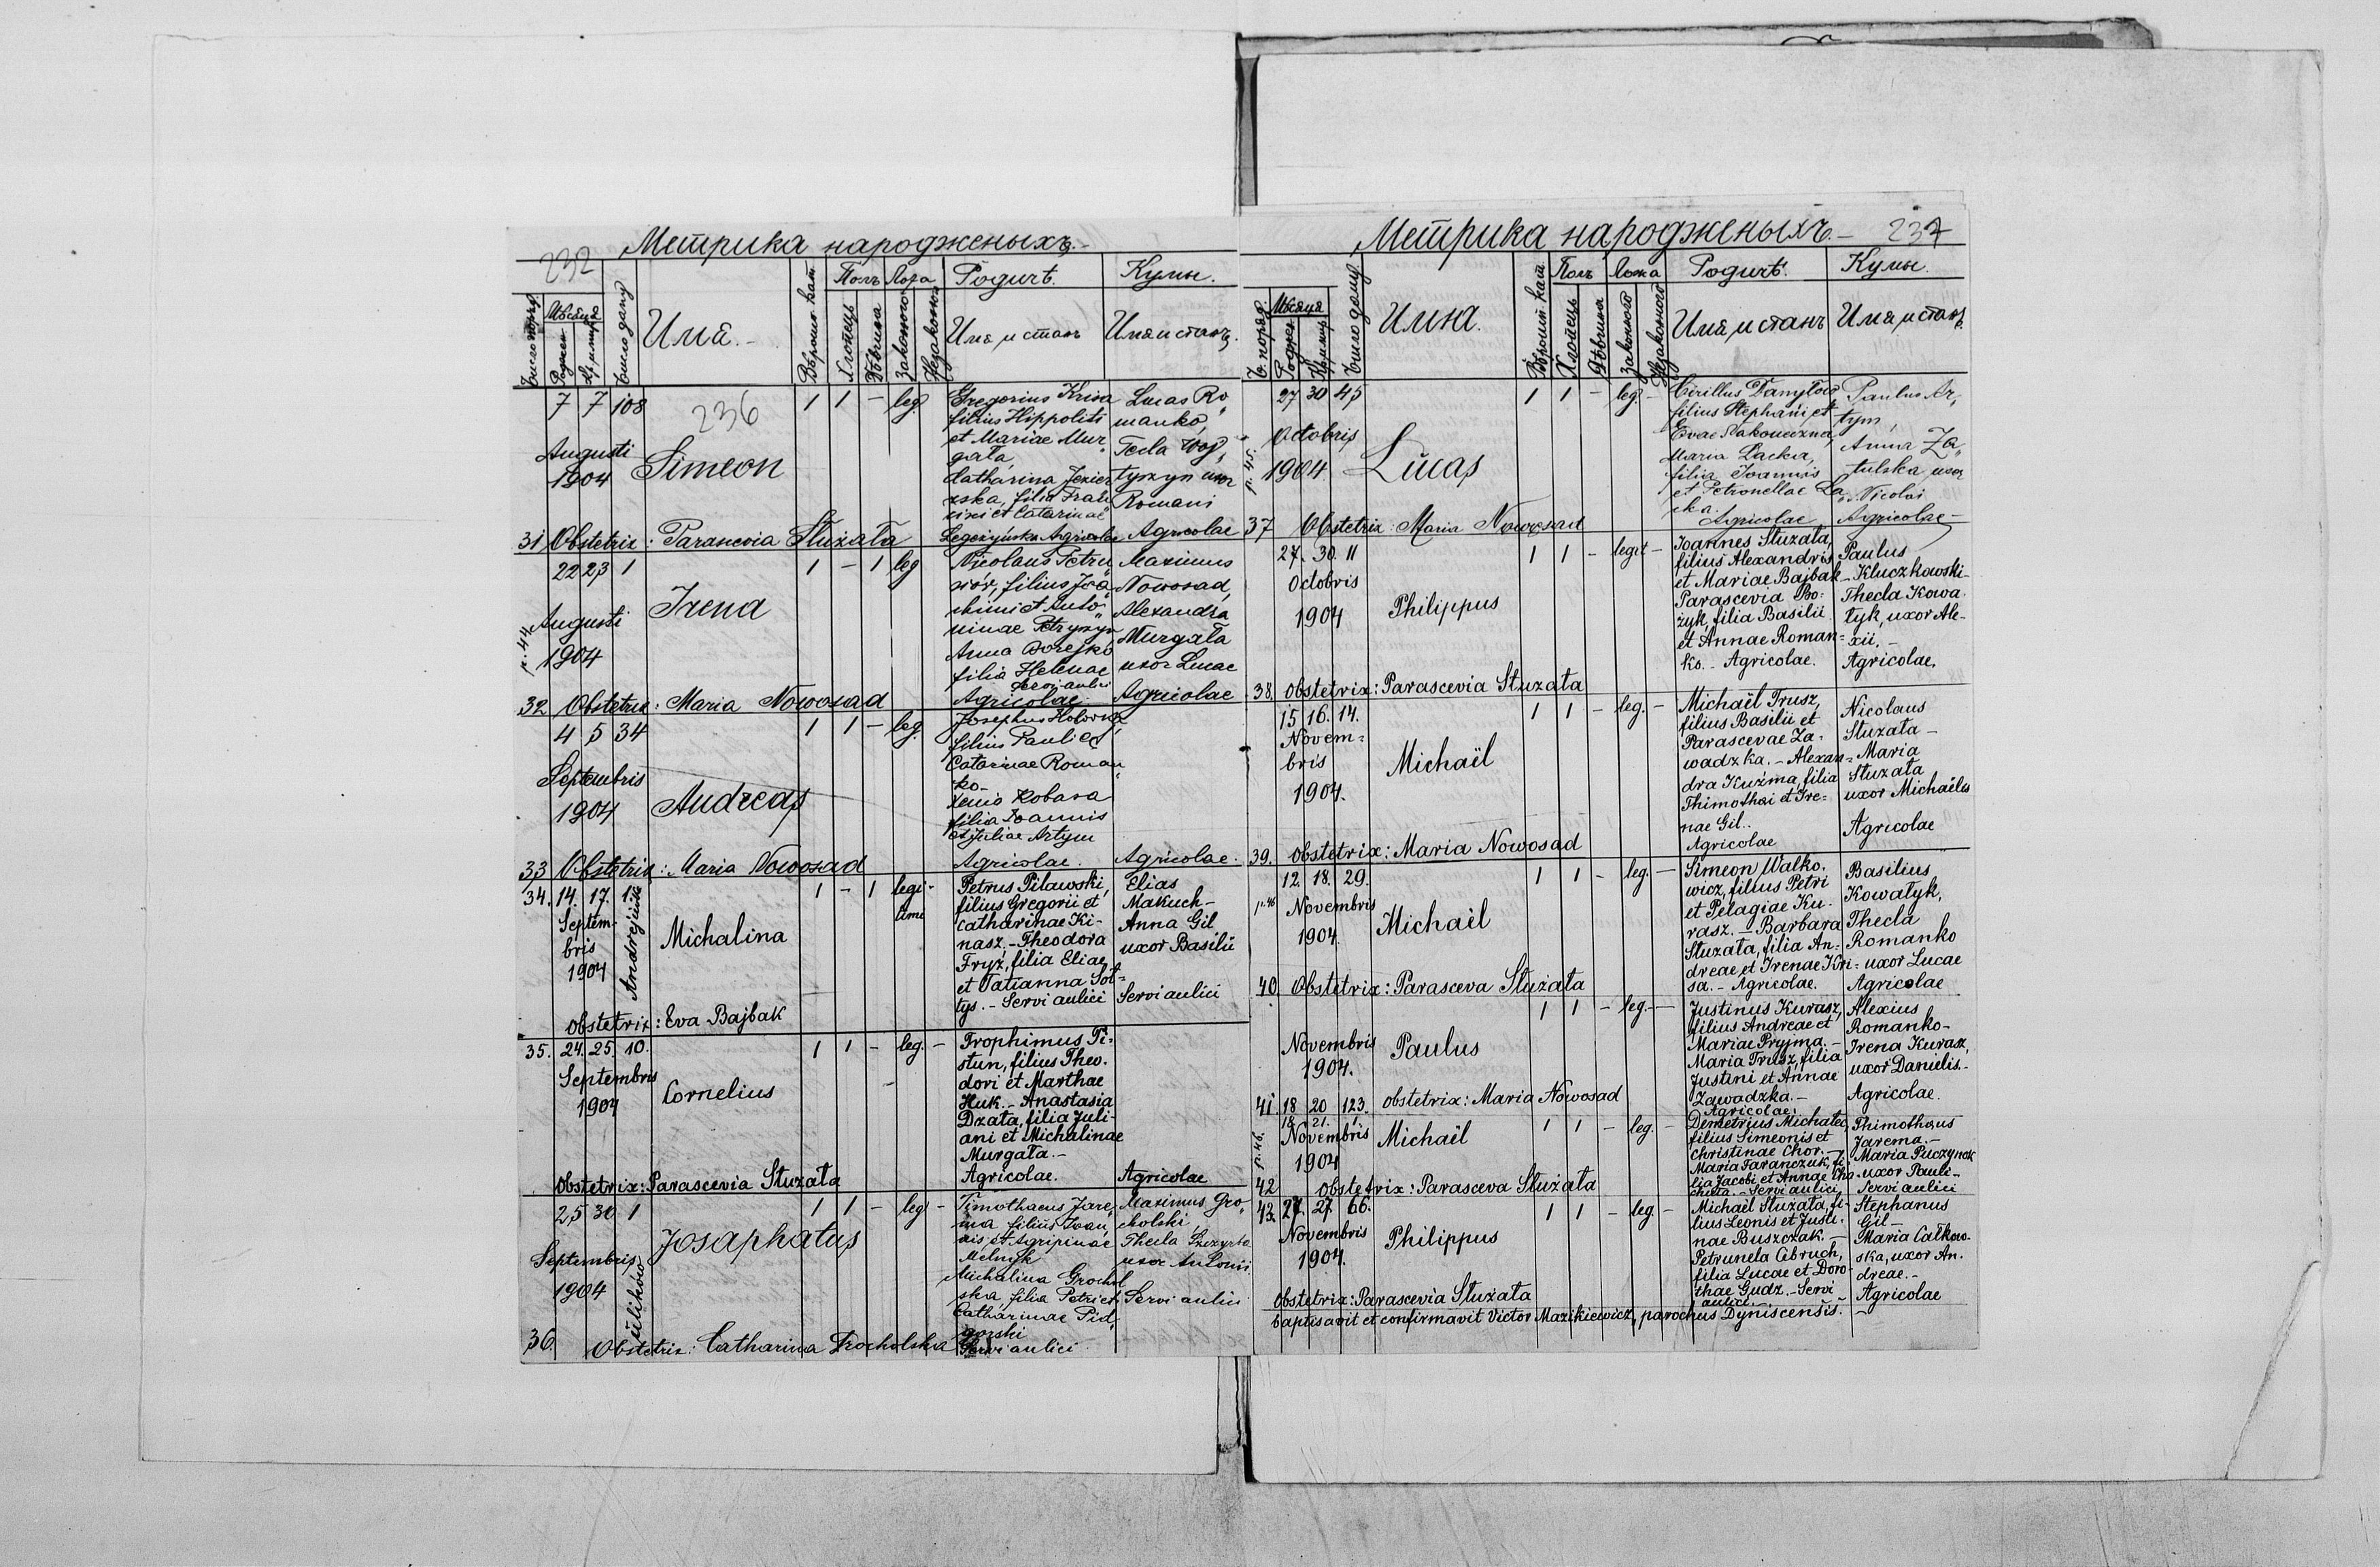 Метрика народженыхъ.-
232
Число поряд.
Мѣсяца
Рожден.
Число дому
Имя.-
Хлопець
Дѣвчина
Законного
Незаконного
Родичѣ.
Имя и станъ
Кумы.
Имя и станъ.
7 7 108
236
1 1 - leg
Gregorius Krisa
filius Hippoliti
et Mariae Mur„
gała,
Catharina Jezier
zska, filia Fran
cisci et Catarinae
Legeżyńska Agricolae
Lucas Ro„
manko,
Tecla Woj„
tyszyn uxor
Romani
Agricolae
Augusti
1904
Simeon
31 Obstetrix: Parascevia Słuzała
22 23 1
1 - 1 leg
Nicolaus Petru
wór, filius Joa„
chimi et Anto„
ninae Petryszyn
Anna Borejko
filia Helenae
servi aulici
Agricolae
Maximus
Nowosad,
Alexandra
Murgała
uxor Lucae
Agricolae
Augusti
1904
p. 44
Irena
32 Obstetrix: Maria Nowosad
4 5 34
1 1 - leg.
Josephus
filius Pauli et
Catarinae Roman„
ko-
Xenia Kobasa
filia Joannis
et Juliae Artym
Agricolae.
Agricolae.
Septembris
1904
Andreas
33 Obstetrix: Maria Nowosad
34. 14. 17. 1.
Andrejówka
Septem-
bris
1904
Michalina
1 - 1 legi-
timi
Petrus Pilawski,
filius Gregorii et
Catharinae Ki-
nasz.- Theodora
Fryz, filia Eliae
et Tatianna Soł-
tys.- Servi aulici
Elias
Makuch-
Anna Gil
uxor Basilii
Servi aulici
obstetrix: Eva Bajbak
35. 24. 25. 10.
Septembris
1904
Cornelius
1 1 - leg. -
Trophimus Ti-
stun, filius Theo-
dori et Marthae
Huk.- Anastasia
Dzała, filia Juli-
ani et Michalinae
Murgała.-
Agricolae.
Agricolae
Obstetrix: Parascevia Słuzała
25 30 1
Septembris
1904
Ulików
Josaphatus
1 1 - leg -
Timothaeus Jare„
ma filius Joan„
nis et Agripinae
Melnyk
Michalina Grochol
ska, filia Petri et
Catharinae Pid„
gorski
Servi aulici
Maximus Gro„
cholski,
Thecla
uxor Antonii
Servi aulici
36. Obstetrix: Catharina Grocholska
Метрика народженыхъ.-
237
Ч. поряд.
Мѣсяца
Рожден.
Число дому
Имя.
Хлопець
Дѣвчина
Законного
Незаконного
Родичѣ.
Имя и станъ
Кумы.
Имя и станъ.
27 30 45
Octobris
1904
p. 45.
Lucas
1 1 - leg. -
Cirillus Danyłow
filius Stephani et
Evae Rakoneczna,
Maria Lacka,
filia Joannis
et Petronellae La„
cka.
Agricolae
Paulus Ar„
tym,
Anna Za„
tulska uxor
Nicolai
Agricolae-
37 Obstetrix: Maria Nowosad
27. 30. 11
Octobris
1904
Philippus
1 1 - legit -
Joannes Słuzała,
filius Alexandris
et Mariae Bajbak-
Parascevia Bo-
zyk, filia Basilii
et Annae Roman-
ko.- Agricolae.
Paulus
Kluczkowski-
Thecla Kowa-
łyk, uxor Ale-
xii.-
Agricolae.
38. Obstetrix: Parascevia Słuzała
15. 16. 14.
Novem-
bris
1904.
Michaël
1 1 - leg. -
Michaël Trusz,
filius Basilii et
Parascevae Za-
wadzka.- Alexan-
dra Kuzma, filia
Thimothei et Ire-
nae Gil..
Agricolae
Nicolaus
Słuzała-
Maria
Słuzała
uxor Michaëlis
Agricolae
39. Obstetrix: Maria Nowosad
12. 18. 29.
p. 46
Novembris
1904.
Michaël
1 1 - leg. -
Simeon Walko-
wicz, filius Petri
et Pelagiae Ku-
rasz.- Barbara
Słuzała, filia An-
dreae et Irenae Kri-
sa.- Agricolae.
Basilius
Kowałyk,
Thecla
Romanko
uxor Lucae
Agricolae
40. Obstetrix: Parasceva Słuzała
Novembris
1904.
Paulus
1 1 - leg. -
Justinus Kurasz,
filius Andreae et
Mariae Pryjma.-
Maria Trusz, filia
Justini et Annae
Zawadzka.-
Agricolae.
Alexius
Romanko-
Irena Kurasz,
uxor Danielis.-
Agricolae.
41. 18 20 123. obstetrix: Maria Nowosad
18. 21. 1.
p. 46.
Novembris
1904
Michaël
1 1 - leg. -
Demetrius Michalec,
filius Simeonis et
Christinae Chor.-
Maria Taranczuk, fi-
lia Jacobi et Annae Cha-
chuła.- Servi aulici
Thimothaus
Jarema.-
Maria Puczynek
uxor Pauli-
Servi aulici
42 Obstetrix: Parasceva Słuzała
43. 27. 27. 66.
Novembris
1904.
Philippus
1 1 - leg. -
Michaël Słuzała, fi-
lius Leonis et Justi-
nae Buszczak.-
Petrunela Cebruch,
filia Lucae et Doro-
thae Gudz.- Servi
aulici.-
Stephanus
Gil-
Maria Całkow-
ska, uxor An-
dreae.-
Agricolae
Obstetrix: Parascevia Słuzała
baptisavit et confirmavit Victor Mazikiewicz, parochus Dyniscensis.-